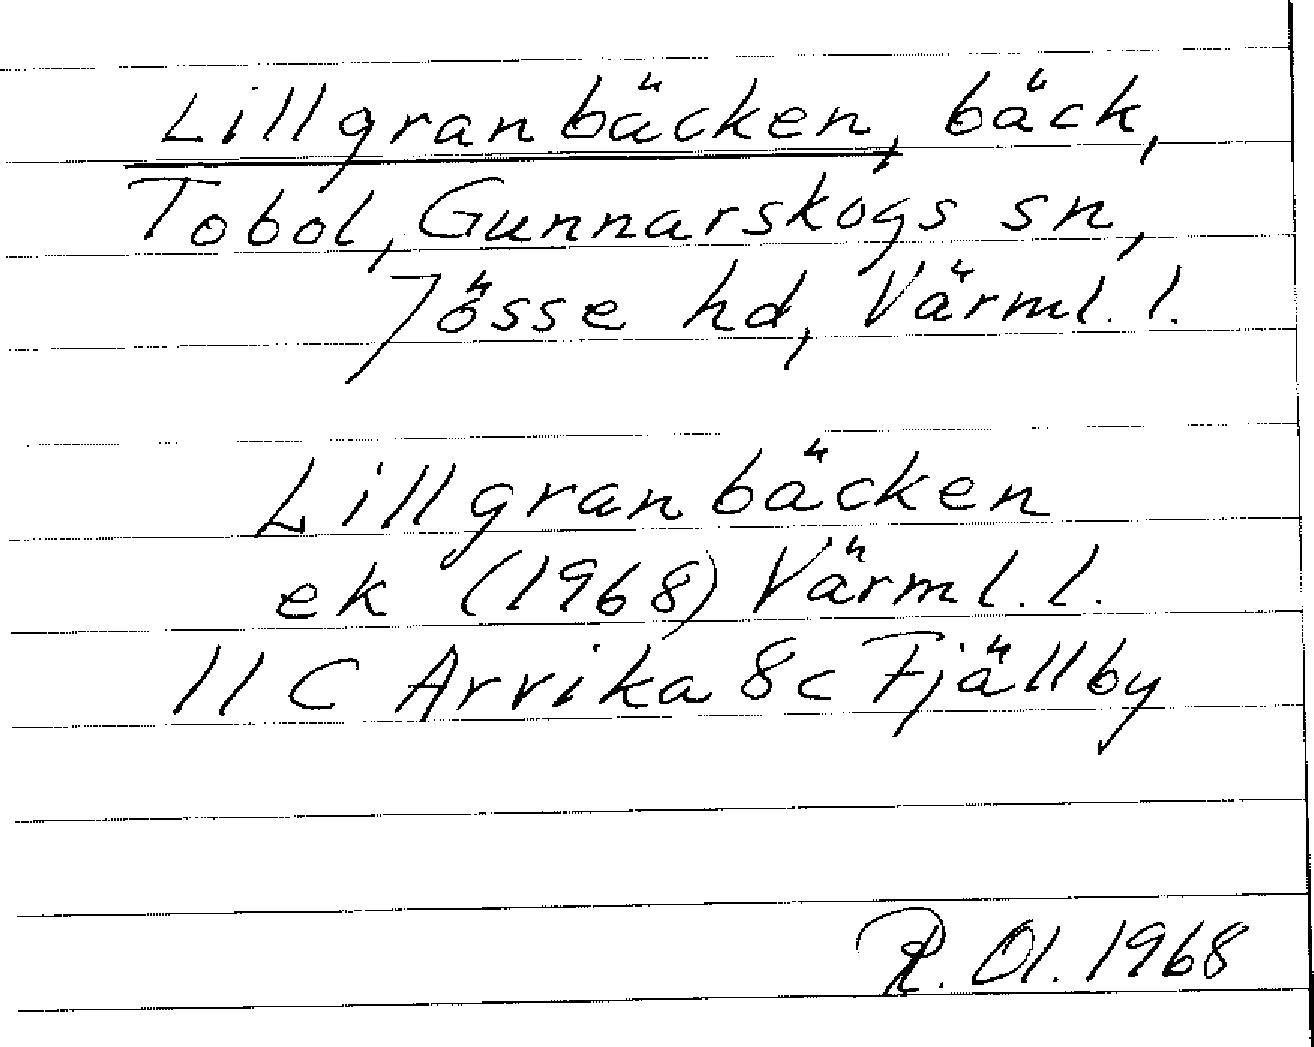 Lillgranbäcken, bäck,
Tobol, Gunnarskogs sn,
Jösse hd, Värml. l.
Lillgranbäcken
ek (1968) Värml. l.
11 C Arvika 8c Fjällby
R. Ol. 1968